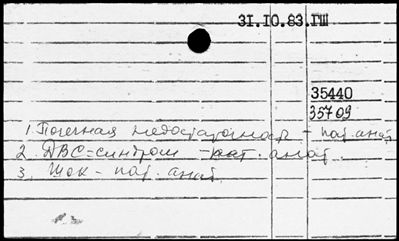 31.10.83.ГШ
35440
35709
1. Почечная недостаточность - пат. анат.
2. ДВС=синдром - пат. анат.
3. Шок - пат. анат.